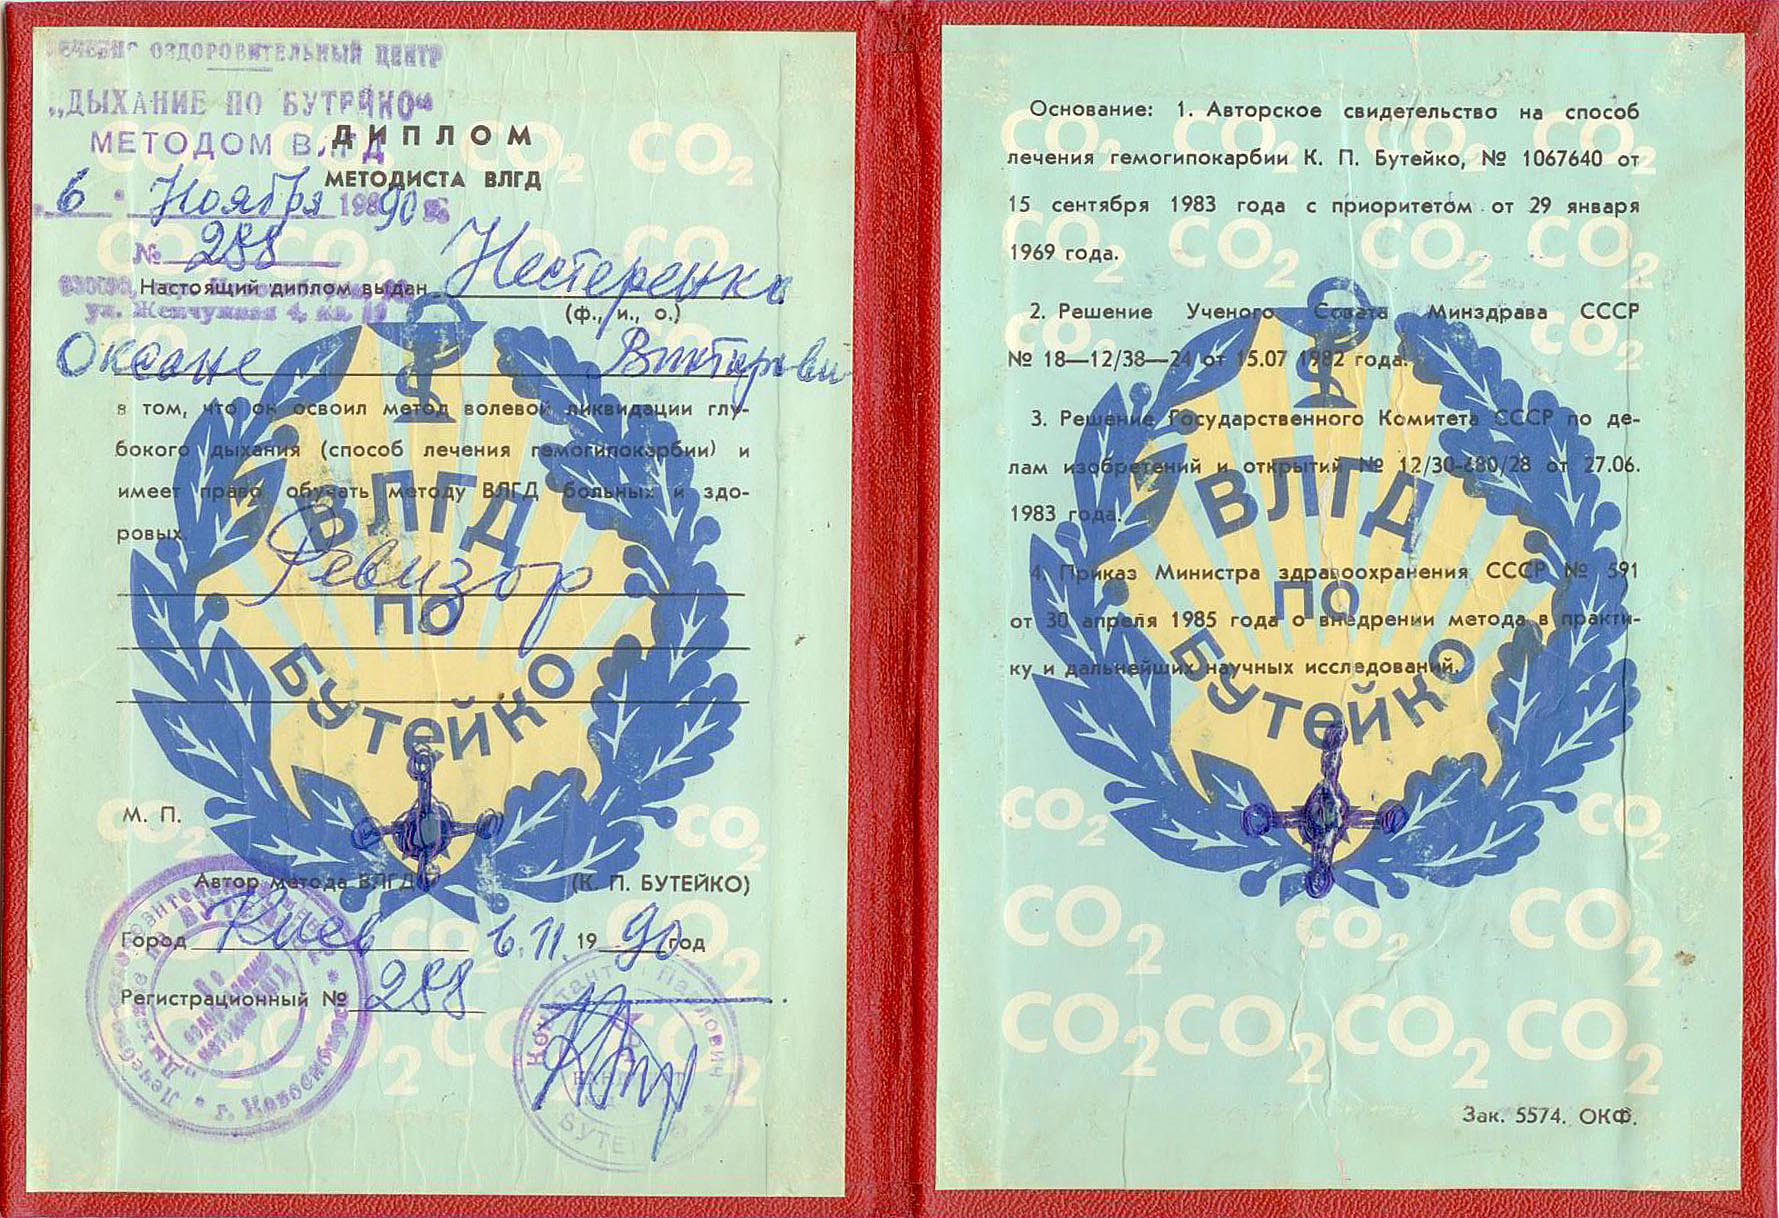 ОЗДОРОВИТЕЛЬНЫЙ ЦЕНТР
„ДЫХАНИЕ ПО БУТЕЙКО“
МЕТОДОМ ВЛГД
ДИПЛОМ
МЕТОДИСТА ВЛГД
6 Ноября 1990
№ 288
Настоящий диплом выдан Нестеренко
(ф., и., о.)
ул. Жемчужная 4, кв.
Оксане Викторовн
в том, что он освоил метод волевой ликвидации глу-
бокого дыхания (способ лечения гемогипокарбии) и
имеет право обучать методу ВЛГД больных и здо-
ровых.
Ревизор
ВЛГД
ПО
Бутейко
М. П.
Автор метода ВЛГД (К. П. БУТЕЙКО)
Город Киев 6.11. 1990 год
Регистрационный № 288
г. Новосибирск
Константин Павлович
БУТЕЙКО
CO2 CO2 CO2 CO2
Основание: 1. Авторское свидетельство на способ
лечения гемогипокарбии К. П. Бутейко, № 1067640 от
15 сентября 1983 года с приоритетом от 29 января
1969 года.
2. Решение Ученого Совета Минздрава СССР
№ 18—12/38—24 от 15.07 1982 года.
3. Решение Государственного Комитета СССР по де-
лам изобретений и открытий № 12/30-680/28 от 27.06.
1983 года.
4. Приказ Министра здравоохранения СССР № 591
от 30 апреля 1985 года о внедрении метода в практи-
ку и дальнейших научных исследований.
ВЛГД
ПО
Бутейко
CO2 CO2
CO2 CO2 CO2
CO2 CO2 CO2 CO2
Зак. 5574. ОКФ.